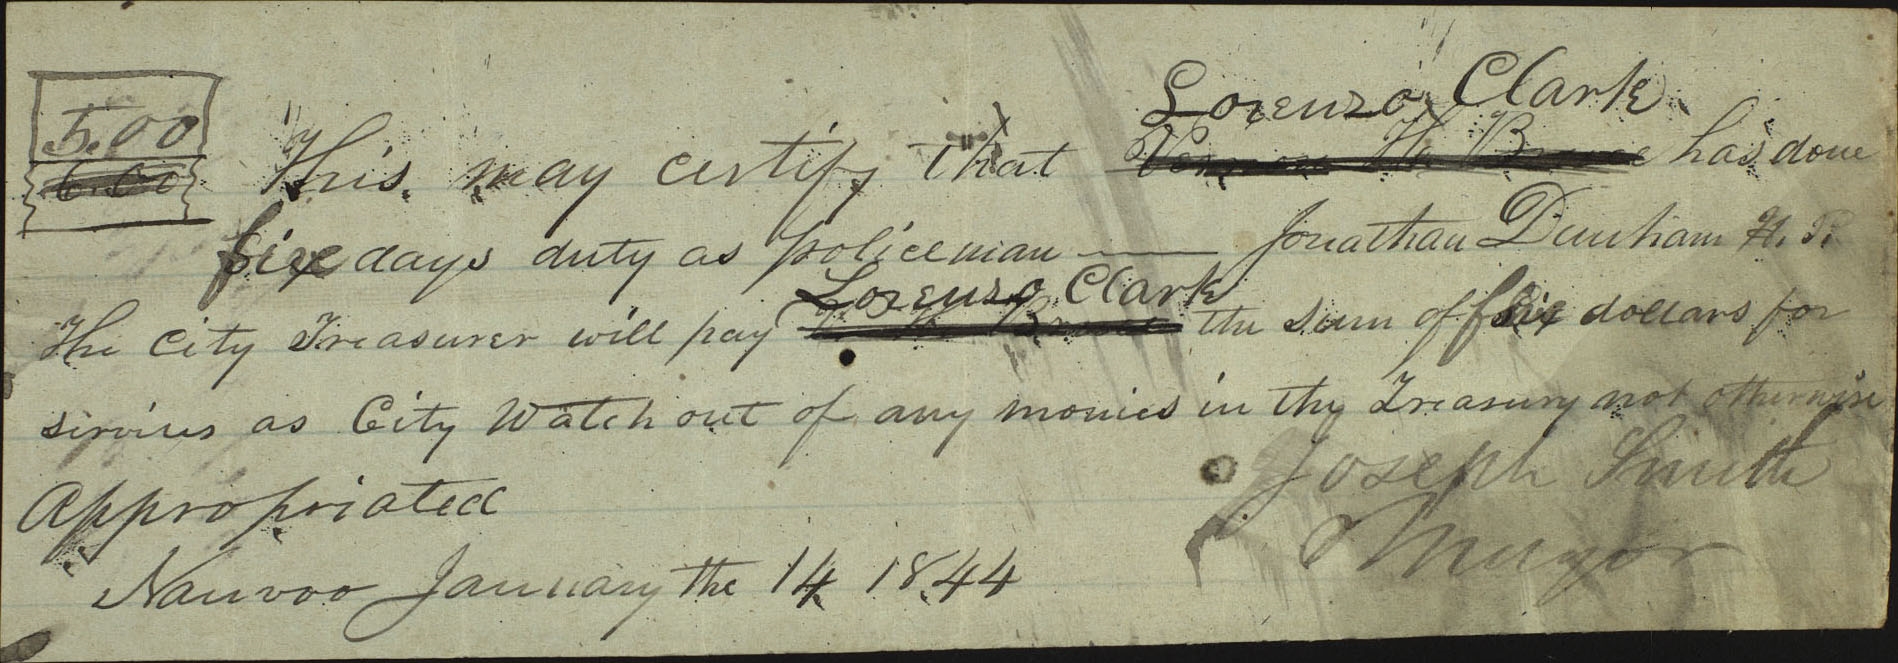 5.00
6.00
Lorenzo Clark
This may certify that Vernon H. Bruce has done
five days duty as policeman — Jonathan Dunham H. P.
Lorenzo Clark
The City Treasurer will pay V. H. Bruce the sum of five dollars for
servises as City Watch out of any monies in the Treasury not otherwise
Appropriated
Joseph Smith
Mayor
Nauvoo January the 14 1844